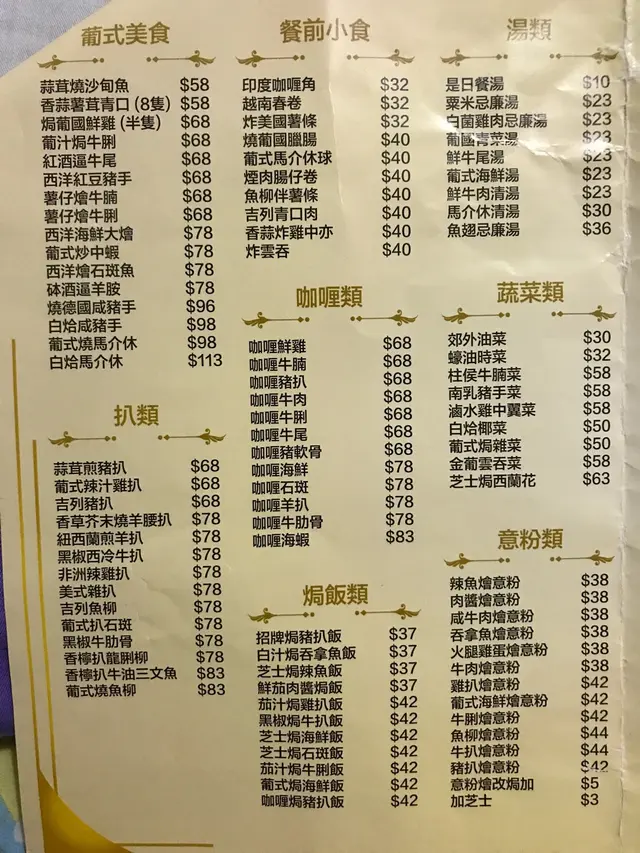 葡式美食
蒜茸燒沙甸魚 $58
香蒜薯茸青口 (8隻) $58
焗葡國鮮雞 (半隻) $68
葡汁焗牛脷 $68
紅酒逼牛尾 $68
西洋紅豆豬手 $68
薯仔燴牛腩 $68
薯仔燴牛脷 $68
西洋海鮮大燴 $78
葡式炒中蝦 $78
西洋燴石斑魚 $78
砵酒逼羊胺 $78
燒德國咸豬手 $96
白烚咸豬手 $98
葡式燒馬介休 $98
白烚馬介休 $113
扒類
蒜茸煎豬扒 $68
葡式辣汁雞扒 $68
吉列豬扒 $68
香草芥末燒羊腰扒 $78
紐西蘭煎羊扒 $78
黑椒西冷牛扒 $78
非洲辣雞扒 $78
美式雜扒 $78
吉列魚柳 $78
葡式扒石斑 $78
黑椒牛肋骨 $78
香檸扒龍脷柳 $78
香檸扒牛油三文魚 $83
葡式燒魚柳 $83
餐前小食
印度咖喱角 $32
越南春卷 $32
炸美國薯條 $32
燒葡國臘腸 $40
葡式馬介休球 $40
煙肉腸仔卷 $40
魚柳伴薯條 $40
吉列青口肉 $40
香蒜炸雞中亦 $40
炸雲吞 $40
咖喱類
咖喱鮮雞 $68
咖喱牛腩 $68
咖喱豬扒 $68
咖喱牛肉 $68
咖喱牛脷 $68
咖喱牛尾 $68
咖喱豬軟骨 $68
咖喱海鮮 $78
咖喱石斑 $78
咖喱羊扒 $78
咖喱牛肋骨 $78
咖喱海蝦 $83
焗飯類
招牌焗豬扒飯 $37
白汁焗吞拿魚飯 $37
芝士焗辣魚飯 $37
鮮茄肉醬焗飯 $37
茄汁焗雞扒飯 $42
黑椒焗牛扒飯 $42
芝士焗海鮮飯 $42
芝士焗石斑飯 $42
茄汁焗牛脷飯 $42
葡式焗海鮮飯 $42
咖喱焗豬扒飯 $42
湯類
是日餐湯 $10
粟米忌廉湯 $23
白菌雞肉忌廉湯 $23
葡國青菜湯 $23
鮮牛尾湯 $23
葡式海鮮湯 $23
鮮牛肉清湯 $23
馬介休清湯 $30
魚翅忌廉湯 $36
蔬菜類
郊外油菜 $30
蠔油時菜 $32
柱侯牛腩菜 $58
南乳豬手菜 $58
滷水雞中翼菜 $58
白烚椰菜 $50
葡式焗雜菜 $50
金葡雲吞菜 $58
芝士焗西蘭花 $63
意粉類
辣魚燴意粉 $38
肉醬燴意粉 $38
咸牛肉燴意粉 $38
吞拿魚燴意粉 $38
火腿雞蛋燴意粉 $38
牛肉燴意粉 $38
雞扒燴意粉 $42
葡式海鮮燴意粉 $42
牛脷燴意粉 $42
魚柳燴意粉 $44
牛扒燴意粉 $44
豬扒燴意粉 $42
意粉燴改焗加 $5
加芝士 $3